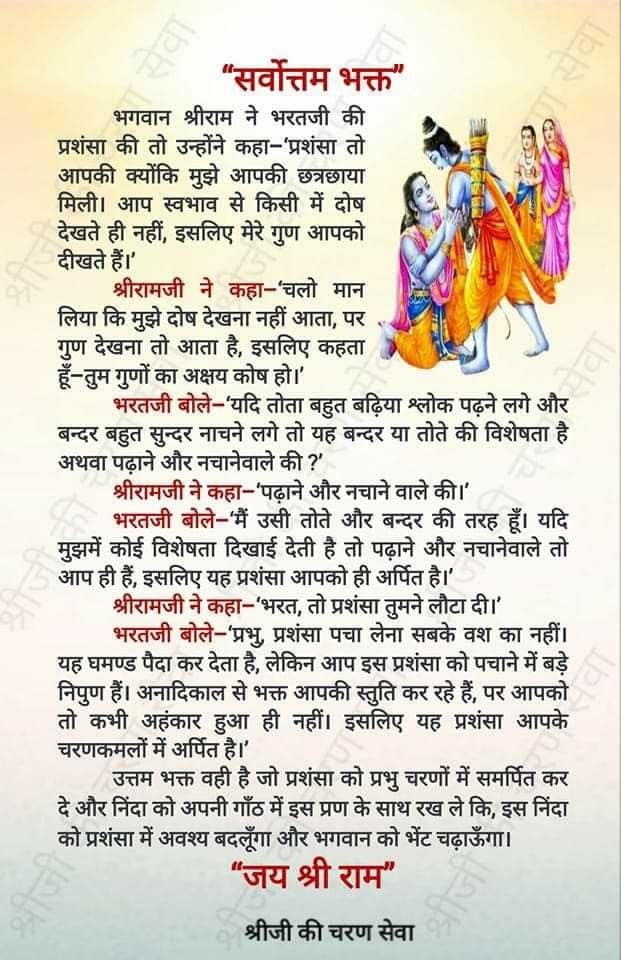 “सर्वोत्तम भक्त”
भगवान श्रीराम ने भरतजी की
प्रशंसा की तो उन्होंने कहा–‘प्रशंसा तो
आपकी क्योंकि मुझे आपकी छत्रछाया
मिली। आप स्वभाव से किसी में दोष
देखते ही नहीं, इसलिए मेरे गुण आपको
दीखते हैं।’
श्रीरामजी ने कहा–‘चलो मान
लिया कि मुझे दोष देखना नहीं आता, पर
गुण देखना तो आता है, इसलिए कहता
हूँ–तुम गुणों का अक्षय कोष हो।’
भरतजी बोले–‘यदि तोता बहुत बढ़िया श्लोक पढ़ने लगे और
बन्दर बहुत सुन्दर नाचने लगे तो यह बन्दर या तोते की विशेषता है
अथवा पढ़ाने और नचानेवाले की ?’
श्रीरामजी ने कहा–‘पढ़ाने और नचाने वाले की।’
भरतजी बोले–‘मैं उसी तोते और बन्दर की तरह हूँ। यदि
मुझमें कोई विशेषता दिखाई देती है तो पढ़ाने और नचानेवाले तो
आप ही हैं, इसलिए यह प्रशंसा आपको ही अर्पित है।’
श्रीरामजी ने कहा–‘भरत, तो प्रशंसा तुमने लौटा दी।’
भरतजी बोले–‘प्रभु, प्रशंसा पचा लेना सबके वश का नहीं।
यह घमण्ड पैदा कर देता है, लेकिन आप इस प्रशंसा को पचाने में बड़े
निपुण हैं। अनादिकाल से भक्त आपकी स्तुति कर रहे हैं, पर आपको
तो कभी अहंकार हुआ ही नहीं। इसलिए यह प्रशंसा आपके
चरणकमलों में अर्पित है।’
उत्तम भक्त वही है जो प्रशंसा को प्रभु चरणों में समर्पित कर
दे और निंदा को अपनी गाँठ में इस प्रण के साथ रख ले कि, इस निंदा
को प्रशंसा में अवश्य बदलूँगा और भगवान को भेंट चढ़ाऊँगा।
“जय श्री राम”
श्रीजी की चरण सेवा